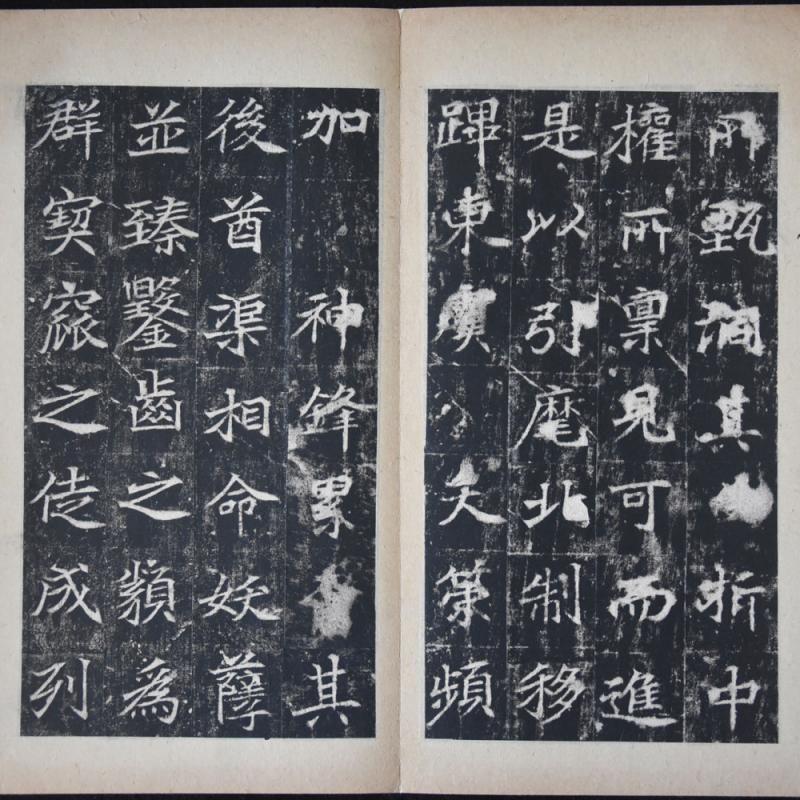 甄洞其折中
權所稟見可而進
是以引麾北制移
蹕東虞天策頻
加 神鋒累其
後酋渠相命妖孽
並臻鑿齒之類為
群窫窳之徒成列